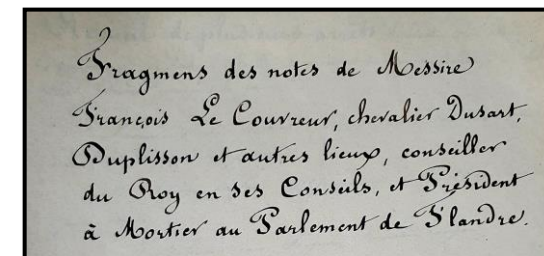 Fragmens des notes de Messire
François Le Couvreur, chevalier Dusart,
Duplisson et autres lieux, conseiller
du Roy en ses Conseils, et Président
à Mortier au Parlement de Flandre.